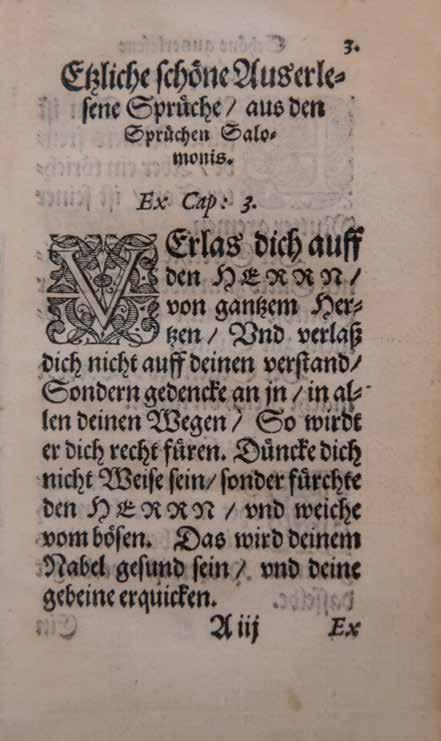 3.
Etzliche schöne Auserle-
sene Sprüche / aus den
Sprüchen Salo-
monis.
Ex Cap: 3.
VErlas dich auff
den HERRN /
von gantzem Her-
tzen / Vnd verlaß
dich nicht auff deinen verstand /
Sondern gedencke an jn / in al-
len deinen Wegen / So wirdt
er dich recht füren. Düncke dich
nicht Weise sein / sonder fürchte
den HERRN / vnd weiche
vom bösen. Das wird deinem
Nabel gesund sein / vnd deine
gebeine erquicken.
A iij Ex